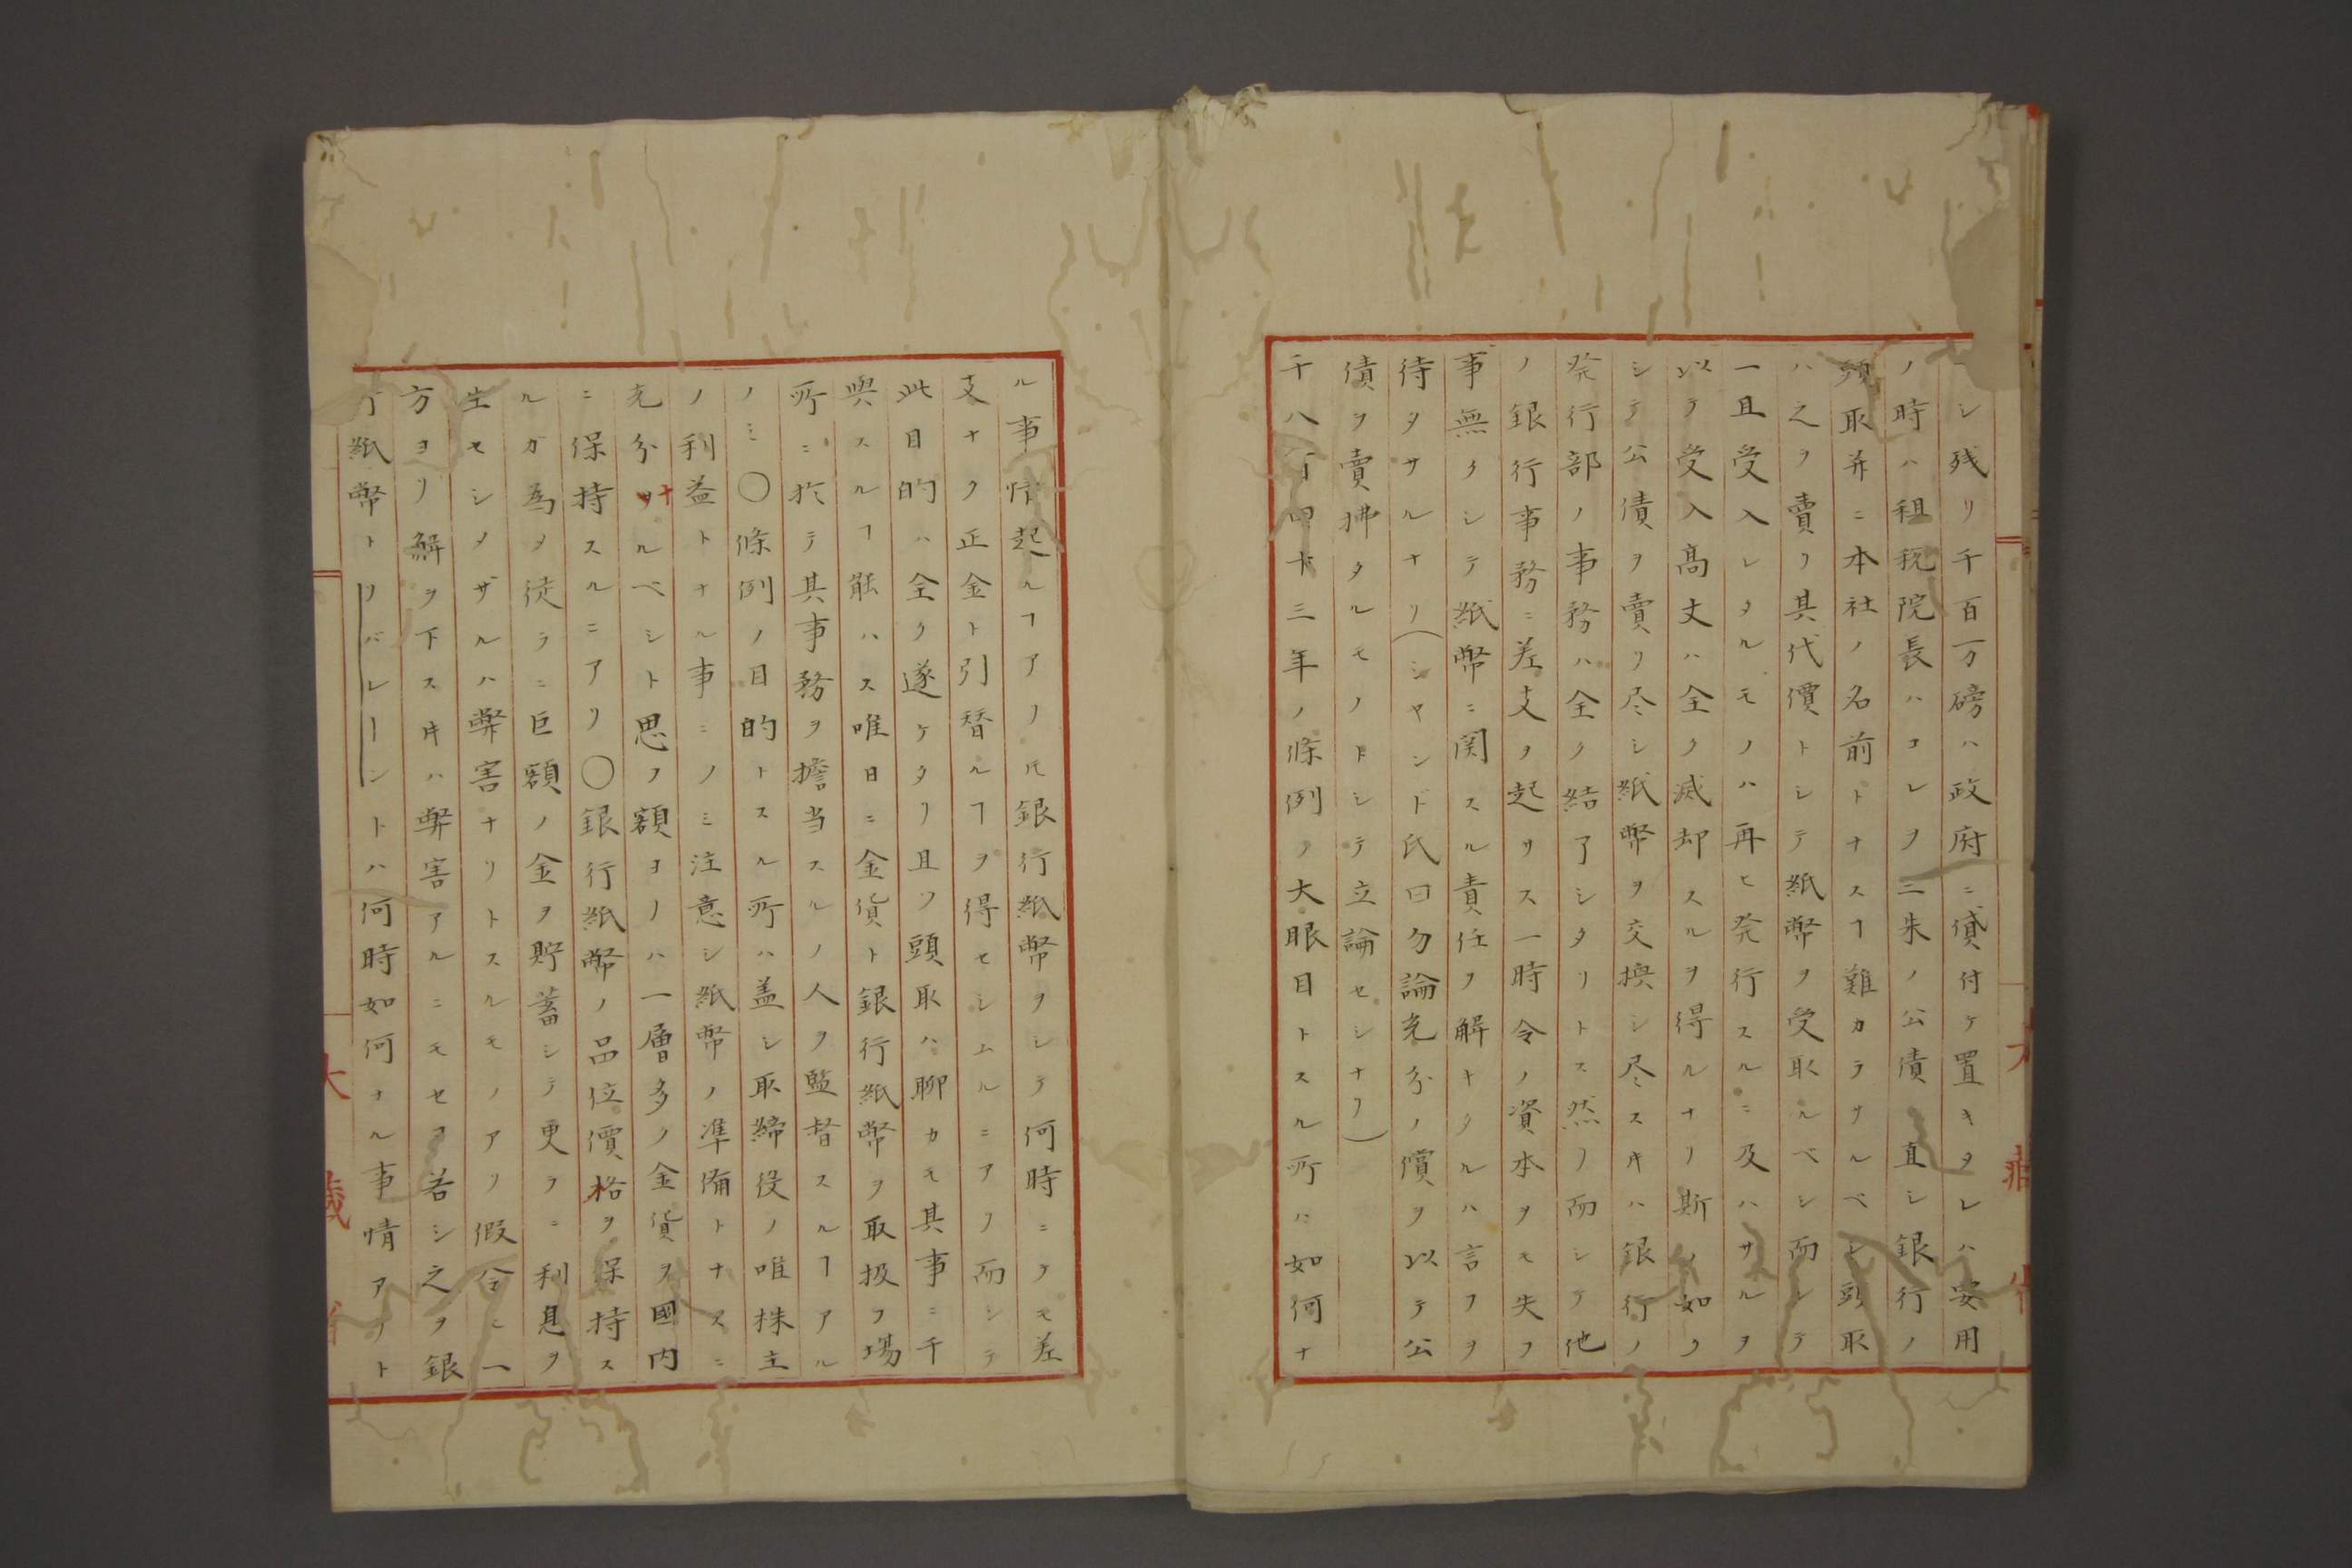 シ残リ千百万磅ハ政府ニ貸付ケ置キタレハ安用
ノ時ハ租税院長ハコレヲ二朱ノ公債ニ直シ銀行ノ
頭取并ニ本社ノ名前トナスヿ難カラサルベシ頭取
ハ之ヲ賣リ其代價トシテ紙幣ヲ受取ルベシ而シテ
一旦受入レタルモノハ再ヒ発行スルニ及ハサルヲ
以テ受入髙丈ハ全ク滅却スルヲ得ルナリ斯ノ如ク
シテ公債ヲ賣リ尽シ紙幣ヲ交換シ尽スキハ銀行ノ
発行部ノ事務ハ全ク結了シタリトス然リ而シテ他
ノ銀行事務ニ差支ヲ起サス一時令ノ資本ヲモ失フ
事無クシテ紙幣ニ関スル責任ヲ解キタルハ言フヲ
待タサルナリ(シヤンド氏曰勿論充分ノ償ヲ以テ公
債ヲ賣拂タルモノトシテ立論セシナリ)
千八百四十三年ノ條例ノ大眼目トスル所ハ如何ナ
ル事情起ルヿアリ𪜈銀行紙幣ヲシテ何時ニケモ差
支ナク正金ト引替ルヿヲ得セシムルニアリ而シテ
此目的ハ全ク遂ケタリ且ツ頭取ハ聊カモ其事ニ干
與スルヿ能ハス唯日ニ金貨ト銀行紙幣ヲ取扱フ場
所ニ於テ其事務ヲ擔当スルノ人ヲ監督スルヿアル
ノミ〇條例ノ目的トスル所ハ盖シ取締役ノ唯株主
ノ利益トナル事ニノミ注意シ紙幣ノ準備トナスニ
充分ナルベシト思フ額ヨリハ一層多ク金貨ヲ國内
ニ保持スルニアリ〇銀行紙幣ノ品位價格ヲ保持ス
ルガ為メ徒ラニ巨額ノ金ヲ貯蓄シテ更ラニ利息ヲ
生セシメザルハ弊害ナリトスルモノアリ假令ニ一
方ヨリ解ヲ下スキハ弊害アルニモセヨ若シ之ヲ銀
行紙幣トリバレーントハ何時如何ナル事情アリト
大蔵省